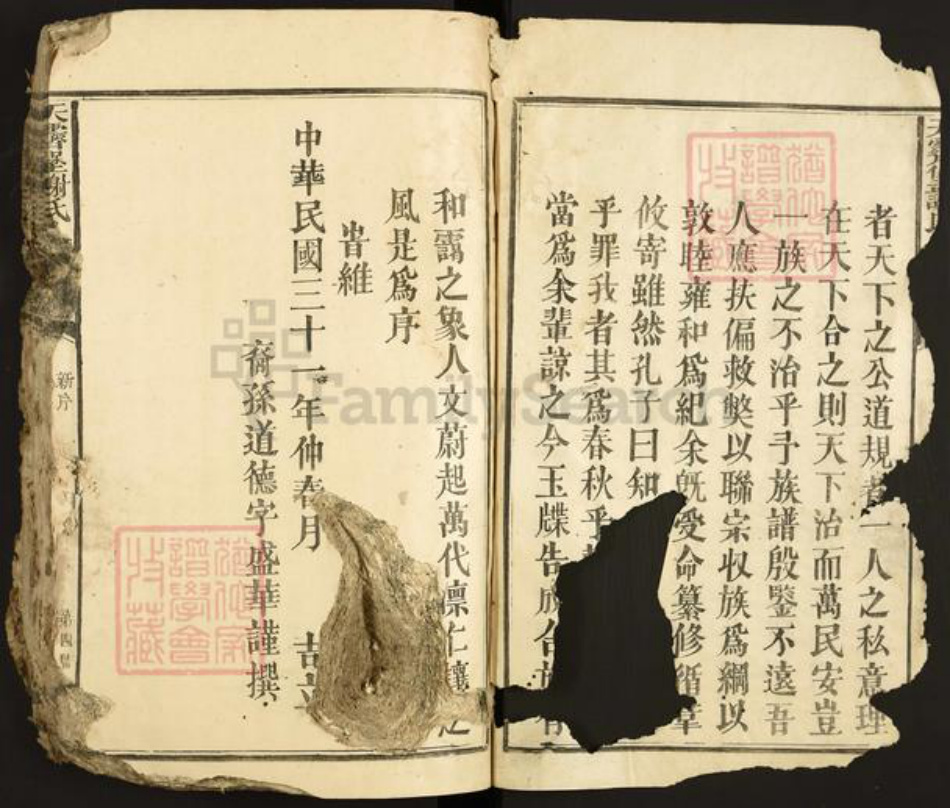 者天下之公道規者一人之私意理
在天下合之則天下治而萬民安豈
一族之不治乎予族譜殷鑒不遠吾
人應扶偏救弊以聯宗收族爲綱以
敦睦雍和爲紀余既受命纂修循章
攸寄雖然孔子曰知
乎罪我者其爲春秋乎
當爲余輩諒之今玉牒告成合
和靄之象人文蔚起萬代凛仁讓之
風是爲序
旹維
中華民國三十一年仲春月 吉立
裔孫道德字盛華謹撰
謝氏
新序
第四
譜學會
收藏
FamilySearch